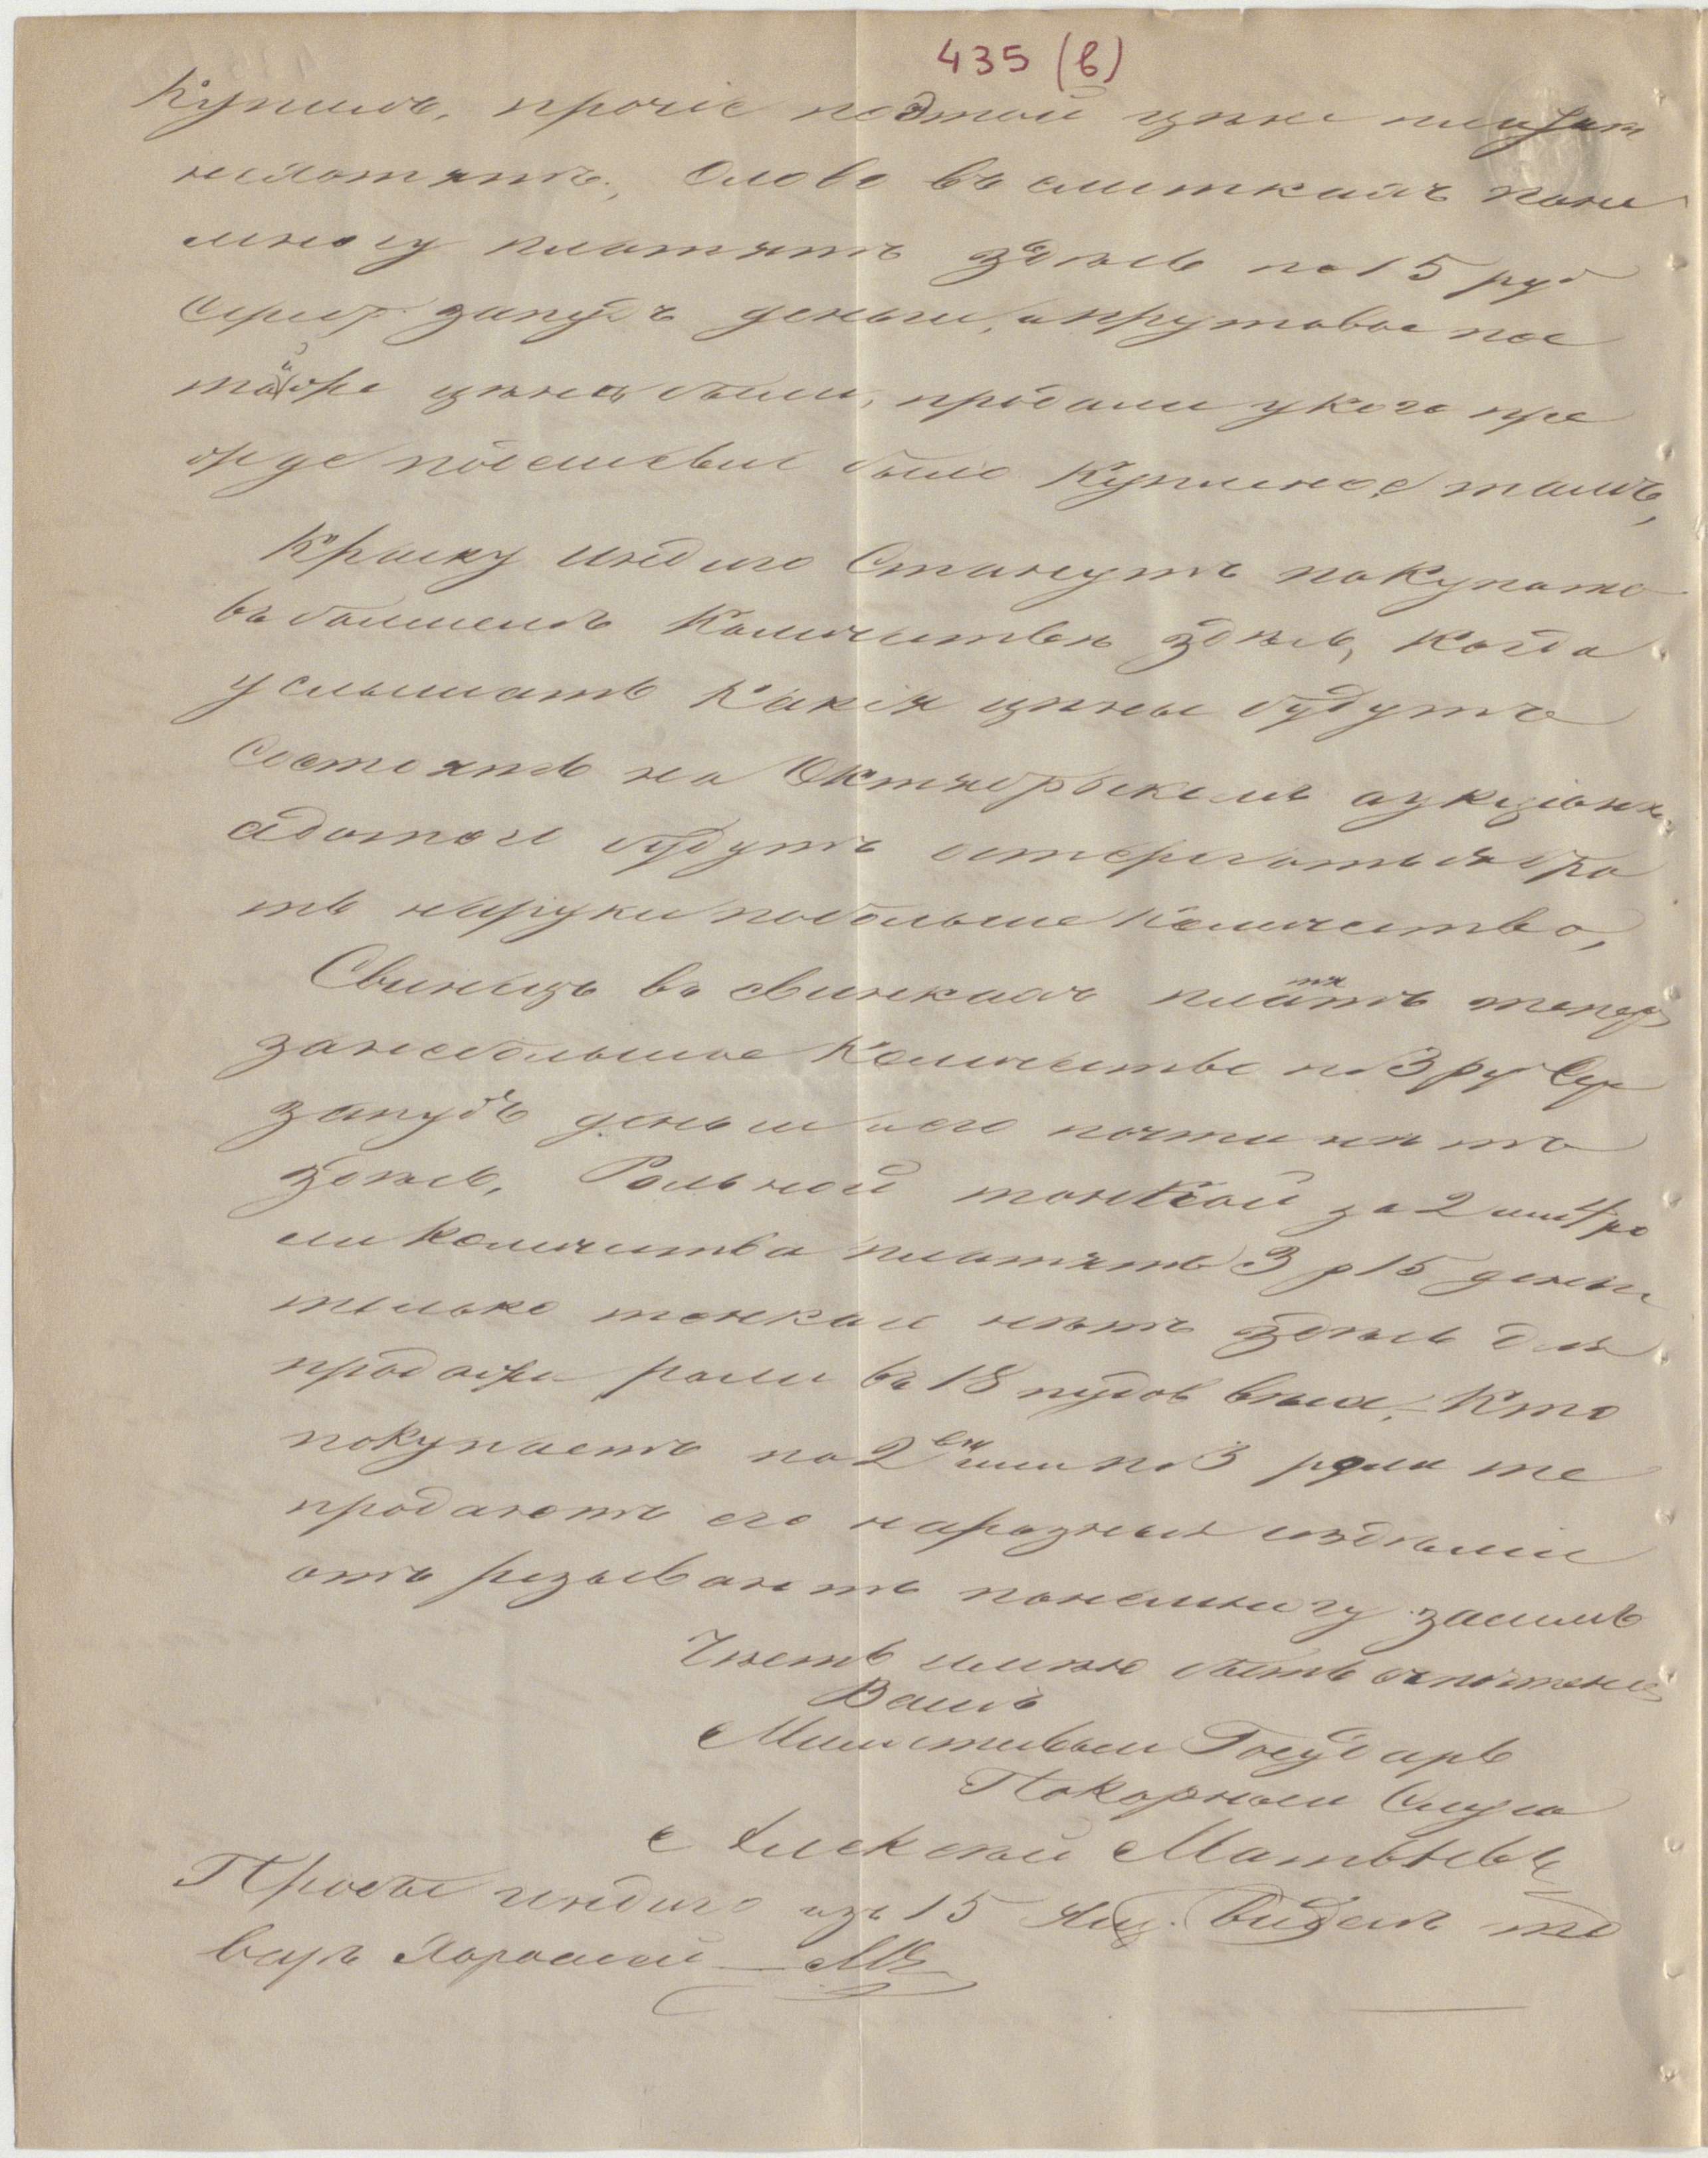 435 (в)
Купилъ, прочіе поэтой цѣне платит
нехотятъ, Олово въ слиткахъ поне
многу платятъ здѣсь по 15 руб
Сереб. запудъ деньги, апрутовое пое
той же цѣнѣ были, продали укого пре
жде подешевле было Купленое тамъ,
Краску индиго Станутъ покупать
въ болшемъ Количествѣ здѣсь, когда
услышатъ Какія цѣны будутъ
Состоятъ на Октябрьскомъ аукціонѣ,
адотого будутъ остерегатьсябра
ть наруки побольше Количество,
Свинецъ въ свинкахъ платятъ теперь
занебольшое Количество по 3 ру Сер
запудъ деньги иего почти нѣтъ
здѣсь, Рольной тонкой за 2 или 4 ро
ли Количества платятъ 3 р 15 деньги
только тонкаго нѣтъ здѣсь для
продажи роли въ 18 пудов вѣса, Кто
покупаетъ по 2 или по 3 роли те
продаютъ его наразныя издѣлии
отърезываютъ понемногу засимъ
Честь имѣю быть съпочтение
Вамъ
Милостивыи Государь
Покорныи Слуга
Алексѣй Матвѣевъ
Пробы индиго изъ 15 ящ. видель то
варъ Хорошей — АМ